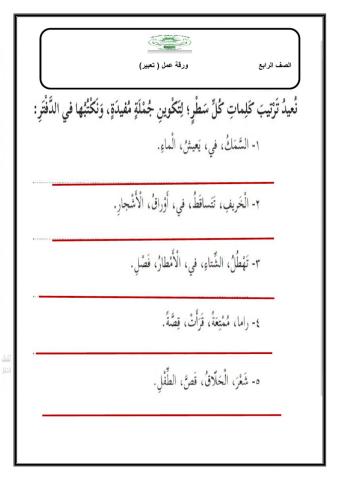 الصف الرابع
ورقة عمل ( تعبير)
نُعيدُ تَرْتيبَ كَلِماتِ كُلِّ سَطْرٍ؛ لِتَكْوينِ جُمْلَةٍ مُفيدَةٍ، وَنَكْتُبُها في الدَّفْتَرِ:
١- السَّمَكُ، في، يَعيشُ، الْماءِ.
٢- الْخَريفِ، تَتَساقَطُ، في، أَوْراقُ، الْأَشْجارِ.
٣- تَهْطُلُ، الشِّتاءِ، في، الْأَمْطارُ، فَصْلِ.
٤- راما، مُمْتِعَةً، قَرَأَتْ، قِصَّةً.
٥- شَعْرَ، الْحَلّاقُ، قَصَّ، الطِّفْلِ.